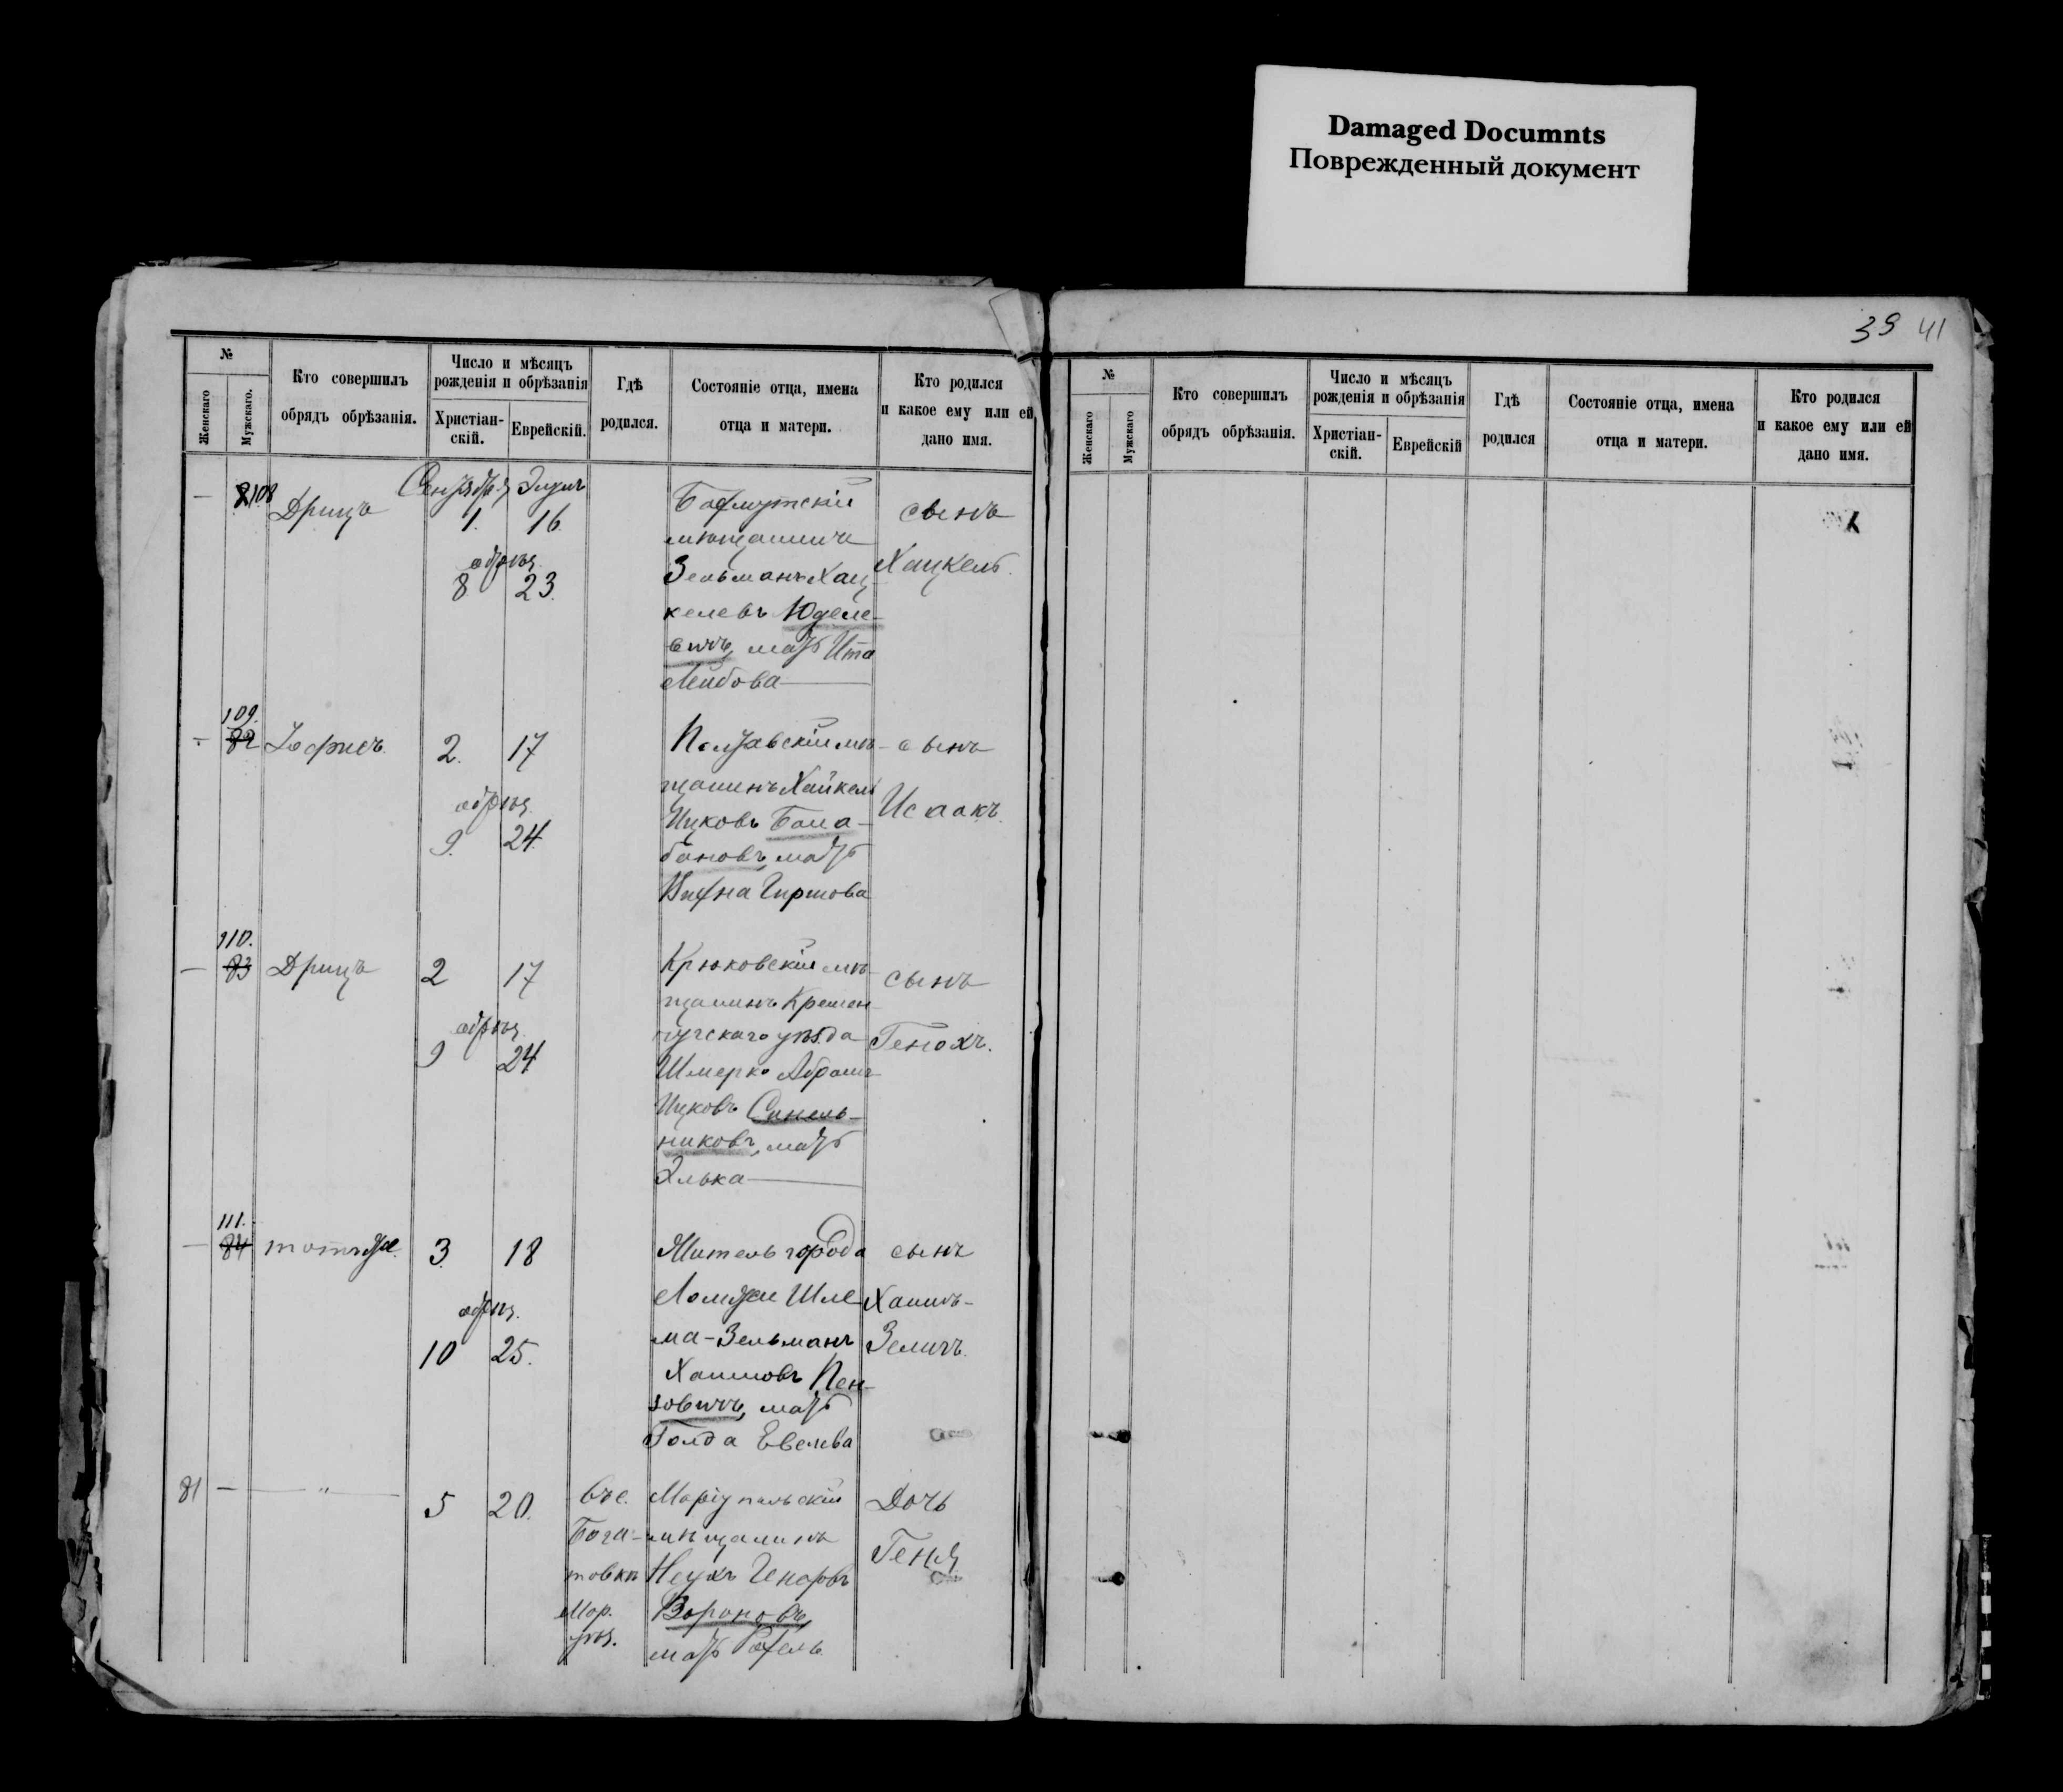 Damaged Documnts
Поврежденный документ
39 41
№
Женскаго
Мужскаго.
Кто совершилъ
обрядъ обрѣзанія.
Число и мѣсяцъ
рожденія и обрѣзанія
Христіан-
скій.
Еврейскій.
Гдѣ
родился.
Состояніе отца, имена
отца и матери.
Кто родился
и какое ему или ей
дано имя.
— 108
Дрицъ
Сентября Элулъ
1. 16
обрѣз.
8 23.
Бахмутскій
мѣщанинъ
Зельманъ Хац-
келевъ Юделе-
вичъ, мать Ита
Лейбова
сынъ
Хацкель.
109.
— 82
2. 17
обрѣз.
9. 24.
Полтавскій мѣ-
щанинъ Хайкель
Ицковъ Бала-
бановъ, мать
Гиршова
сынъ
Исаакъ.
110.
— 83 Дрицъ
2 17
обрѣз.
9 24
Крюковскій мѣ-
щанинъ Кремен-
чугскаго уѣзда
Шмерко Абрамъ
Ицковъ Синель-
никовъ, мать
Элька
сынъ
Генохъ.
111.
— 84 тотъ же.
3. 18
обрѣз.
10 25.
Житель города
Ломжи Шле-
ма-Зельманъ
Хаимовъ Пен-
зовичъ, мать
Голда Евелева
сынъ
Хаимъ-
Зеликъ.
81 — — " —
5 20.
въ с.
Бога-
товкѣ
Мар.
уѣз.
Маріупольскій
мѣщанинъ
Вороновъ,
мать Рохель
Дочь
Геня
№
Женскаго
Мужскаго
Кто совершилъ
обрядъ обрѣзанія.
Число и мѣсяцъ
рожденія и обрѣзанія
Христіан-
скій.
Еврейскій
Гдѣ
родился
Состояніе отца, имена
отца и матери.
Кто родился
и какое ему или ей
дано имя.